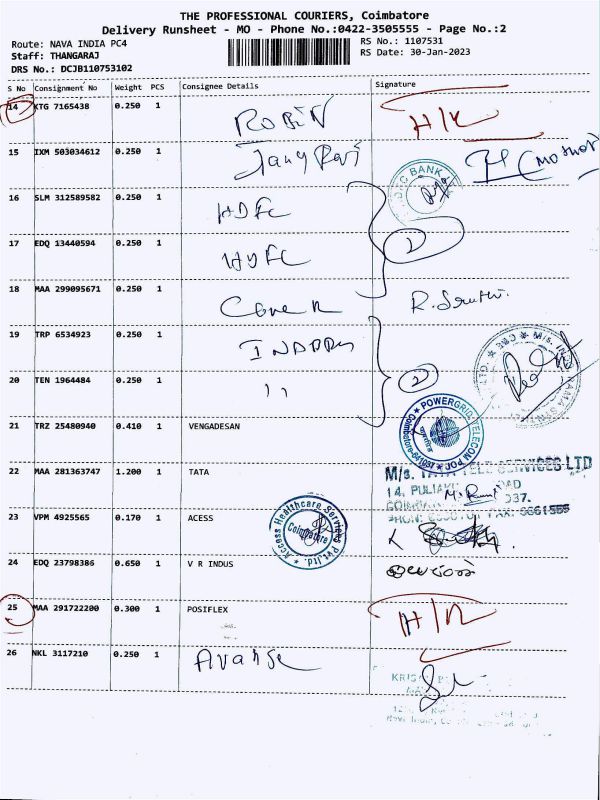 THE PROFESSIONAL COURIERS, Coimbatore
Delivery Runsheet - MO - Phone No.:0422-3505555 - Page No.:2
Route: NAVA INDIA PC4
Staff: THANGARAJ
DRS No.: DCJB110753102
RS No.: 1107531
RS Date: 30-Jan-2023
S No Consignment No Weight PCS Consignee Details Signature
14 KTG 7165438 0.250 1 ROBIN
15 IXM 503034612 0.250 1
BANK
16 SLM 312589582 0.250 1 HDFC
2
17 EDQ 13440594 0.250 1 HDFC
18 MAA 299095671 0.250 1
19 TRP 6534923 0.250 1
20 TEN 1964484 0.250 1 " 2
21 TRZ 25480940 0.410 1 VENGADESAN
POWERGRID TELECOM
Coimbatore-641037
22 MAA 281363747 1.200 1 TATA
M/s. SERVICES LTD
14,
23 VPM 4925565 0.170 1 ACESS
Access Healthcare Services Pvt. Ltd.
Coimbatore
24 EDQ 23798386 0.650 1 V R INDUS
25 MAA 291722200 0.300 1 POSIFLEX
26 NKL 3117210 0.250 1 Avanse